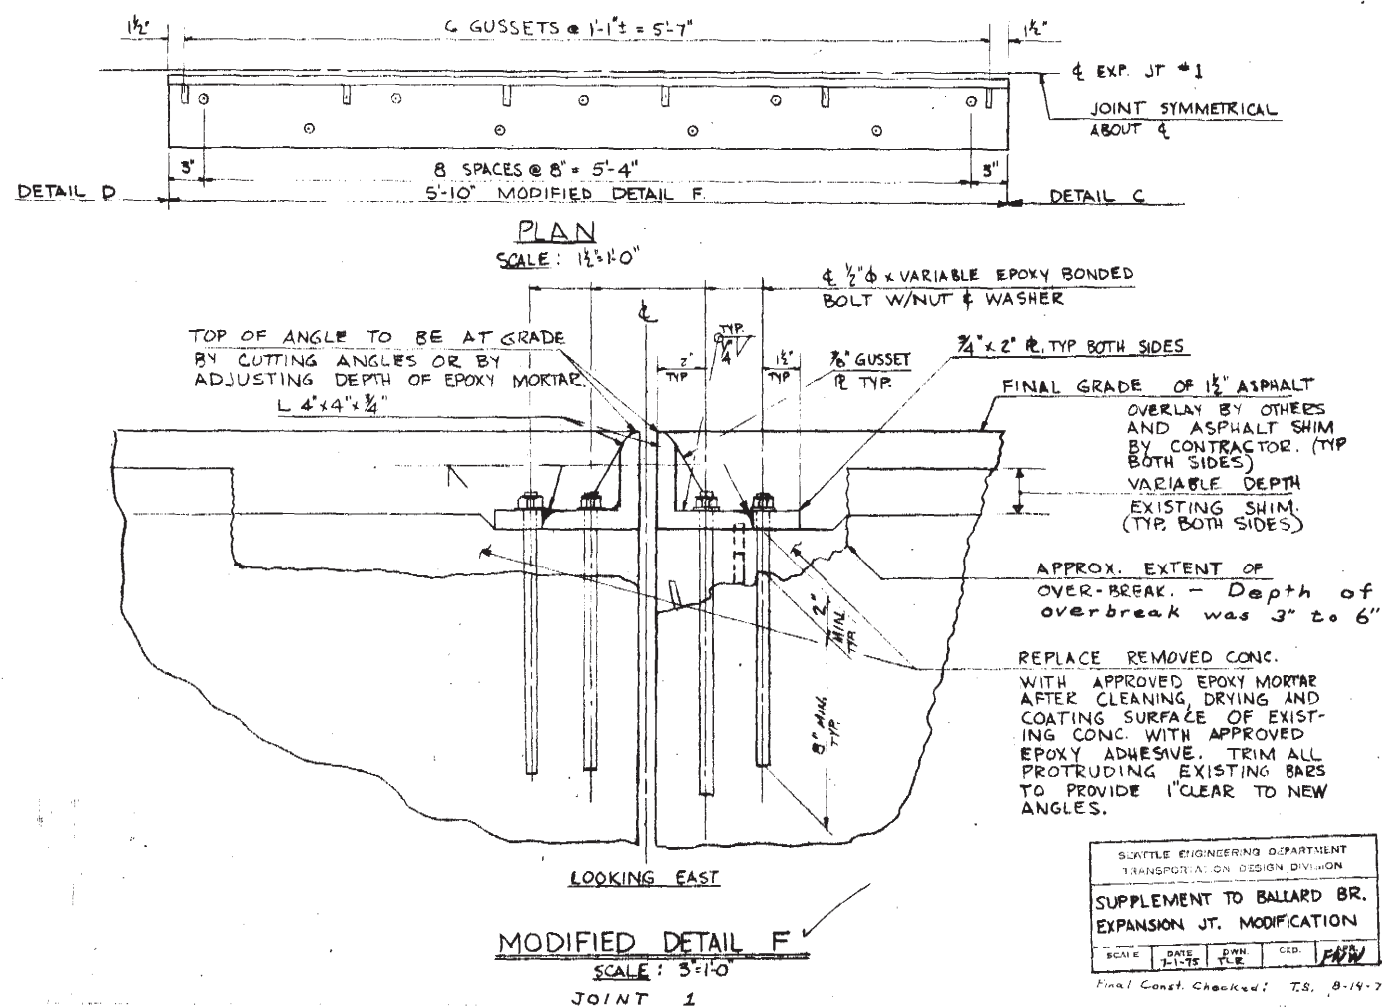 1½"
6 GUSSETS @ 1'-1"± = 5'-7"
1½"
℄ EXP. JT #1
JOINT SYMMETRICAL
ABOUT ℄
3"
8 SPACES @ 8" = 5'-4"
3"
DETAIL D
5'-10" MODIFIED DETAIL F.
DETAIL C
PLAN
SCALE: 1½"=1'-0"
℄ ½"ϕ x VARIABLE EPOXY BONDED
BOLT W/NUT & WASHER
℄
TOP OF ANGLE TO BE AT GRADE
BY CUTTING ANGLES OR BY
ADJUSTING DEPTH OF EPOXY MORTAR.
L 4"x4"x¾"
TYP.
¼
2"
TYP
1½"
TYP
⅜" GUSSET
℄ TYP.
¾" x 2" ℄. TYP BOTH SIDES
FINAL GRADE OF 1½" ASPHALT
OVERLAY BY OTHERS
AND ASPHALT SHIM
BY CONTRACTOR. (TYP
BOTH SIDES)
VARIABLE DEPTH
EXISTING SHIM.
(TYP. BOTH SIDES)
APPROX. EXTENT OF
OVER-BREAK. - Depth of
overbreak was 3" to 6"
2"
MIN.
TYP.
8" MIN.
TYP.
REPLACE REMOVED CONC.
WITH APPROVED EPOXY MORTAR
AFTER CLEANING, DRYING AND
COATING SURFACE OF EXIST-
ING CONC. WITH APPROVED
EPOXY ADHESIVE. TRIM ALL
PROTRUDING EXISTING BARS
TO PROVIDE 1" CLEAR TO NEW
ANGLES.
LOOKING EAST
MODIFIED DETAIL F
SCALE: 3"=1'-0"
JOINT 1
SEATTLE ENGINEERING DEPARTMENT
TRANSPORTATION DESIGN DIVISION
SUPPLEMENT TO BALLARD BR.
EXPANSION JT. MODIFICATION
SCALE
DATE
7-1-75
DWN.
TLR
CKD.
FNW
Final Const. Checked: T.S. 8-14-7